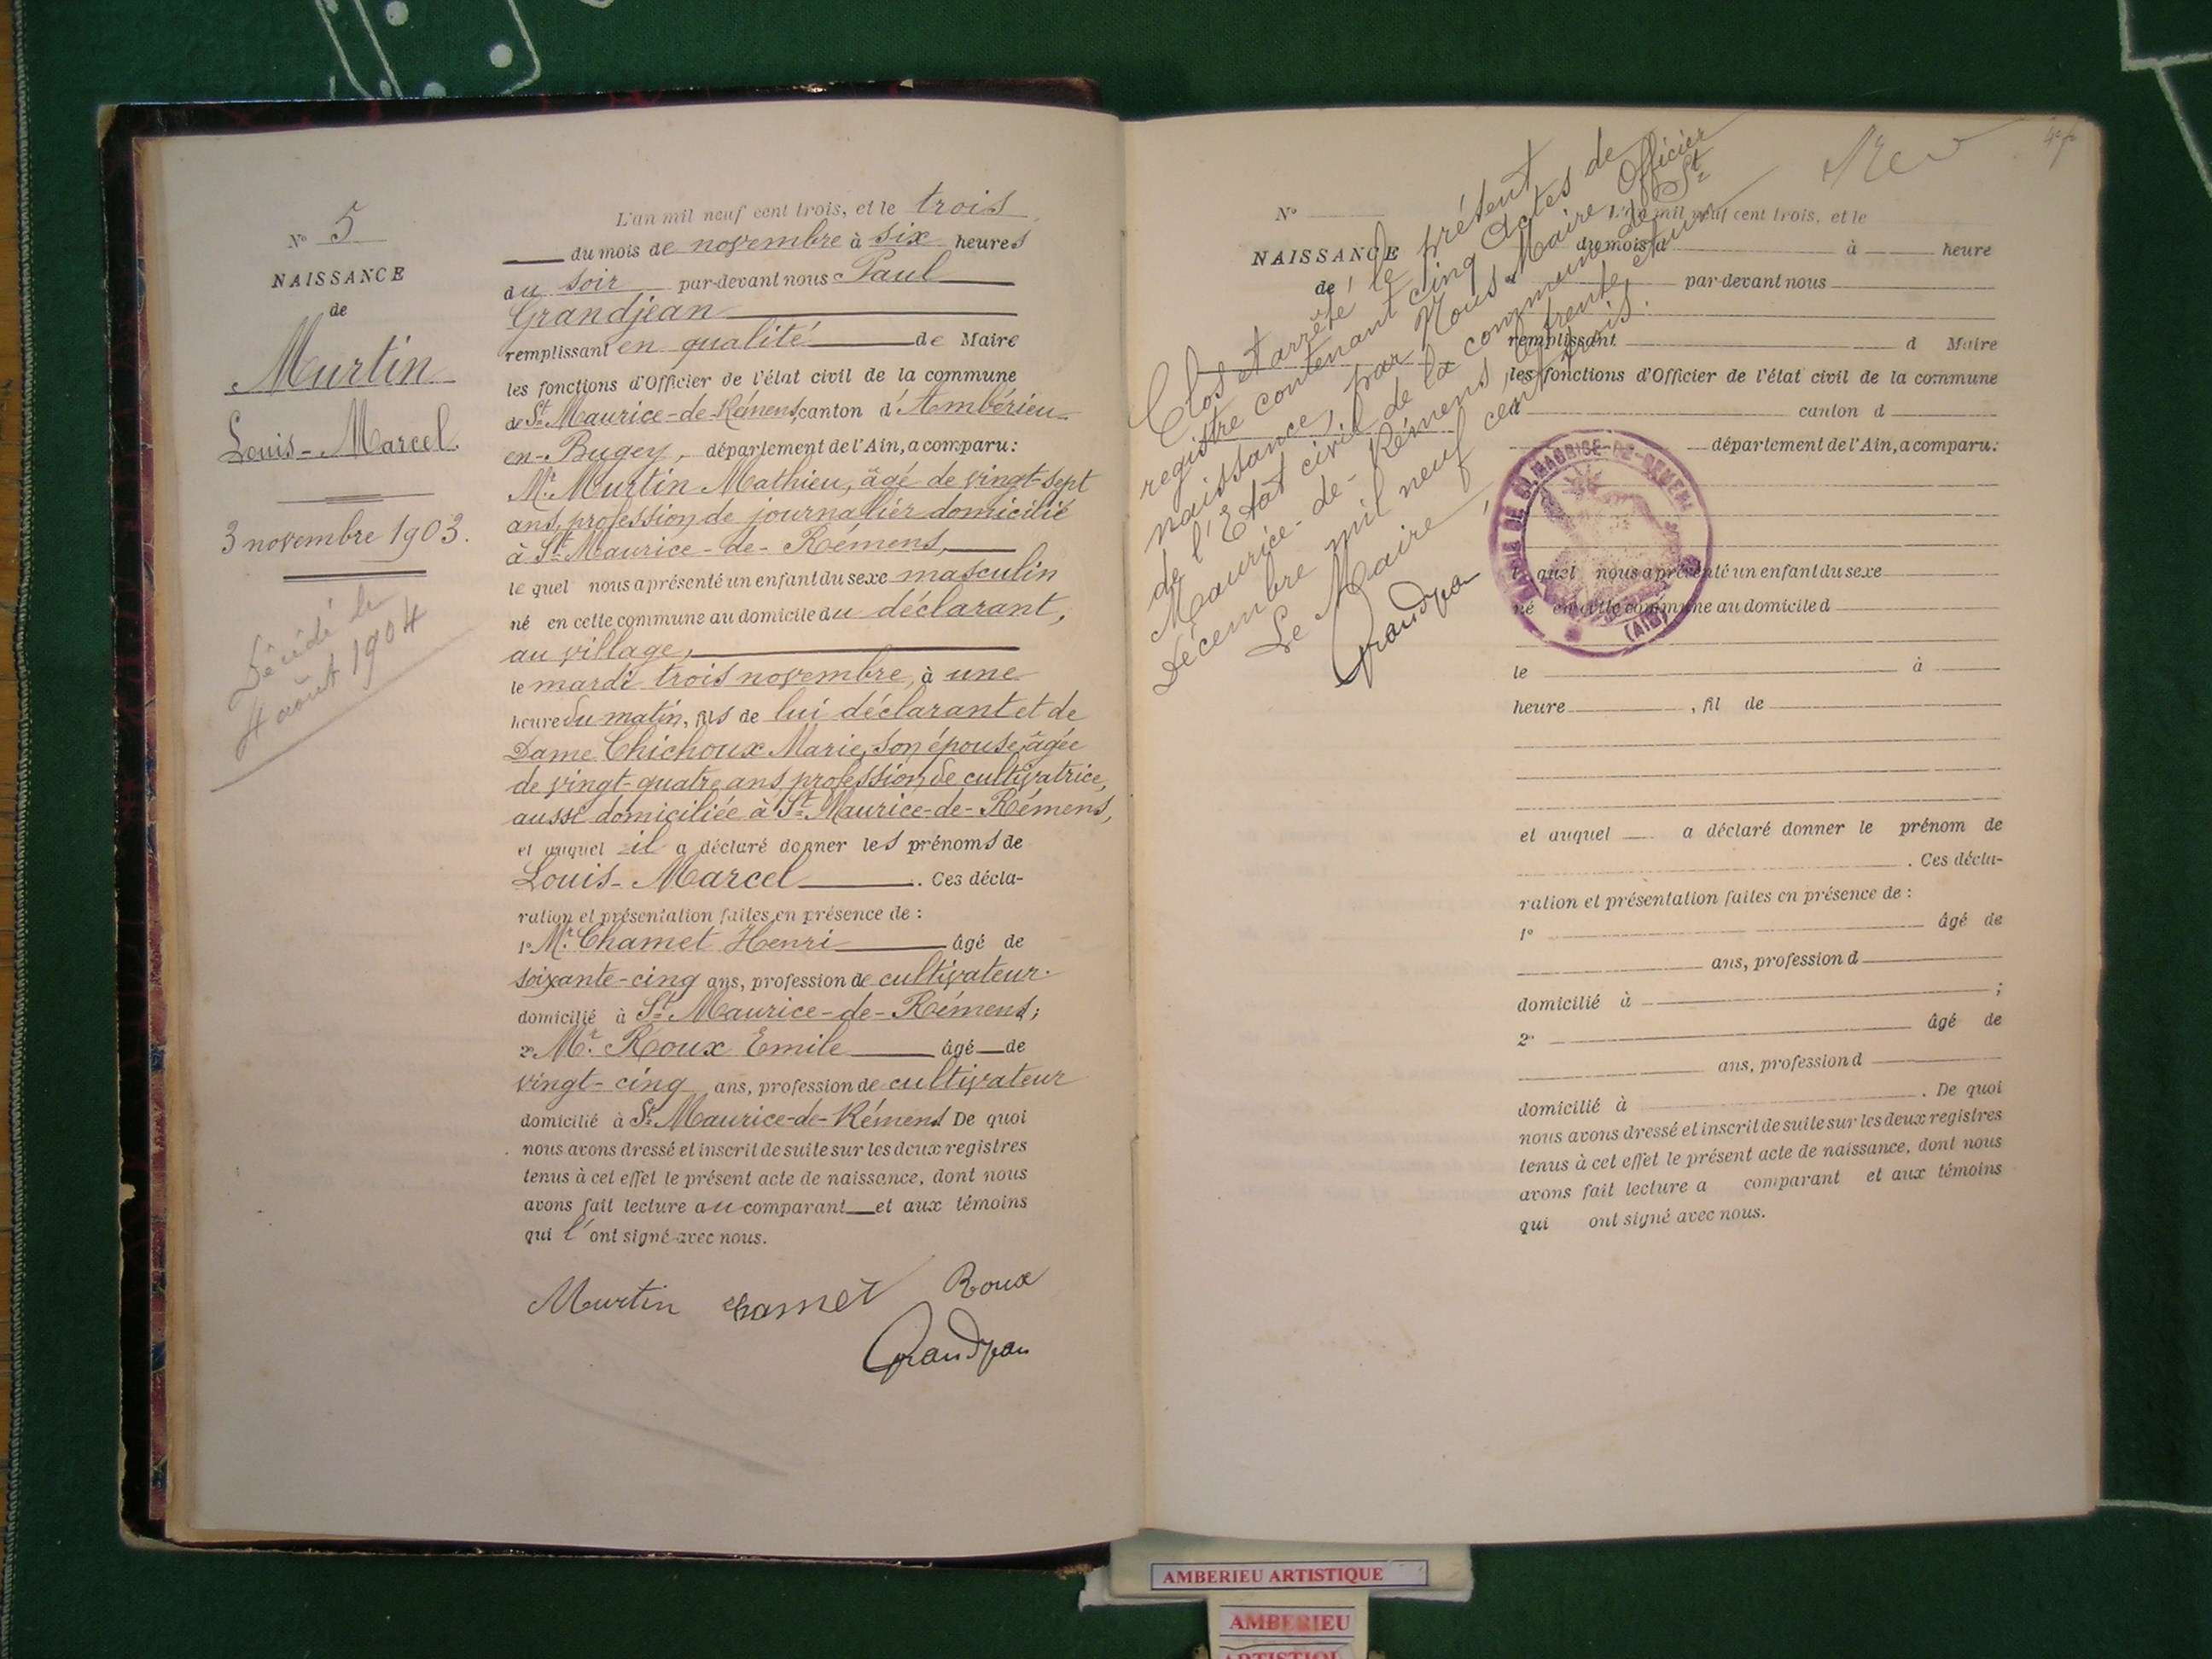 N° 5
NAISSANCE
de
Murtin
Louis-Marcel.
3 novembre 1903.
Décédé le
4 août 1904
L'an mil neuf cent trois, et le trois
du mois de novembre à six heures
du soir par-devant nous Paul
Grandjean
remplissant en qualité de Maire
les fonctions d'Officier de l'état civil de la commune
de St Maurice-de-Rémens, canton d'Ambérieu-
en-Bugey, département de l'Ain, a comparu:
Mr. Murtin Mathieu, âgé de vingt-sept
ans, profession de journalier domicilié
à St Maurice-de-Rémens,
lequel nous a présenté un enfant du sexe masculin
né en cette commune au domicile du déclarant,
au village,
le mardi trois novembre, à une
heure du matin, fils de lui déclarant et de
Dame Chichoux Marie, son épouse, âgée
de vingt-quatre ans, profession de cultivatrice,
aussi domiciliée à St Maurice-de-Rémens,
et auquel il a déclaré donner les prénoms de
Louis-Marcel. Ces décla-
ration et présentation faites en présence de :
1° Mr. Chamet Henri âgé de
soixante-cinq ans, profession de cultivateur
domicilié à St Maurice-de-Rémens;
2° Mr. Roux Emile âgé de
vingt-cinq ans, profession de cultivateur
domicilié à St Maurice-de-Rémens De quoi
nous avons dressé et inscrit de suite sur les deux registres
tenus à cet effet le présent acte de naissance, dont nous
avons fait lecture au comparant et aux témoins
qui l'ont signé avec nous.
Murtin Chamet Roux
Grandjean
Clos et arrêté le présent
registre contenant cinq actes de
naissance, par Nous Maire, Officier
de l'Etat civil de la commune de St
Maurice-de-Rémens, le trente et un
Décembre mil neuf cent trois.
Le Maire
Grandjean
N°
NAISSANCE
de
L'an mil neuf cent trois, et le
du mois d à heure
par-devant nous
remplissant d Maire
les fonctions d'Officier de l'état civil de la commune
d canton d
département de l'Ain, a comparu:
MAIRIE DE ST MAURICE-DE-REMENS
(AIN)
l quel nous a présenté un enfant du sexe
né en cette commune au domicile d
le à
heure , fil de
et auquel a déclaré donner le prénom de
. Ces décla-
ration et présentation faites en présence de :
1° âgé de
ans, profession d
domicilié à ;
2° âgé de
ans, profession d
domicilié à . De quoi
nous avons dressé et inscrit de suite sur les deux registres
tenus à cet effet le présent acte de naissance, dont nous
avons fait lecture a comparant et aux témoins
qui ont signé avec nous.
AMBERIEU ARTISTIQUE
AMBERIEU
ARTISTIQU